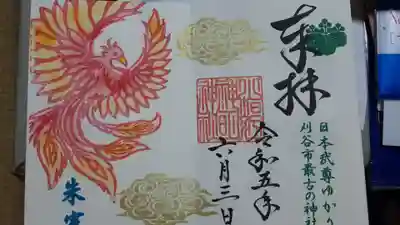 奉拝
日本武尊ゆかり
刈谷市最古の神社
令和五年
六月三日
神社
朱